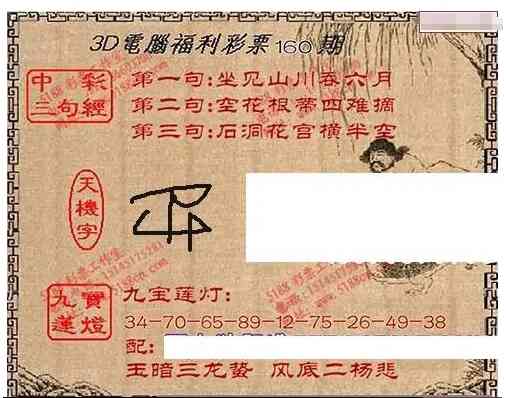 3D電腦福利彩票160期
中彩
三句經
第一句:坐见山川吞六月
第二句:空花根蒂四难摘
第三句:石洞花宫横半空
天機字
九寶
蓮燈
九宝莲灯:
34-70-65-89-12-75-26-49-38
配:
玉暗三龙蛰 风底二杨悲